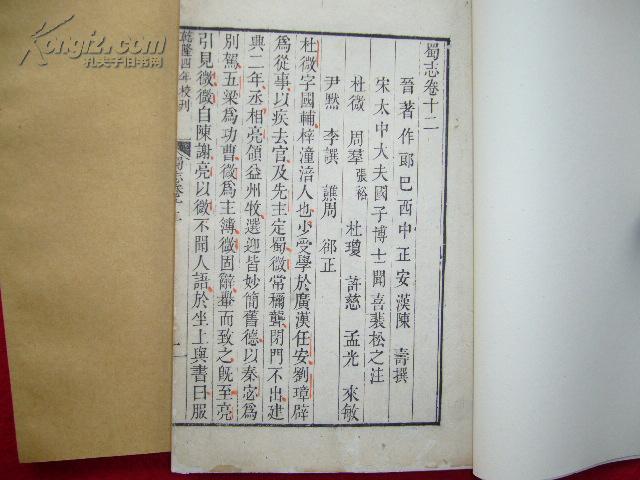 蜀志卷十二
晉著作郎巴西中正安漢陳 壽撰
宋太中大夫國子博士聞喜裴松之注
杜微 周羣 張裕 杜瓊 許慈 孟光 來敏
尹黙 李譔 譙周 郤正
杜微字國輔梓潼涪人也少受學於廣漢任安劉璋辟
為從事以疾去官及先主定蜀微常稱聾閉門不出建
興二年丞相亮領益州牧選迎皆妙簡舊德以秦宓爲
別駕五梁爲功曹微爲主簿微固辭轝而致之既至亮
引見微微自陳謝亮以微不聞人語於坐上與書曰服
乾隆四年校刊
蜀志卷十二
一
Kongfz.com
孔夫子旧书网